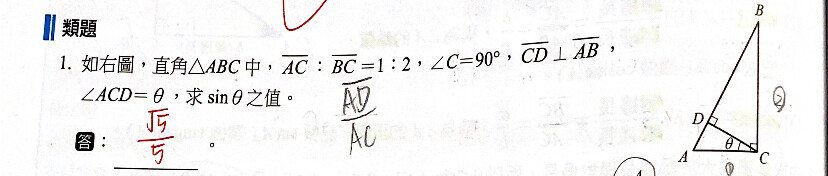 類題
1. 如右圖,直角△ABC 中, \overline{AC}:\overline{BC}=1:2,∠C=90°,\overline{CD}⊥\overline{AB},
∠ACD=θ,求 sinθ 之值。
\frac{\overline{AD}}{\overline{AC}}
答: \frac{\sqrt{5}}{5} 。
B
②
D
θ
A
C
①